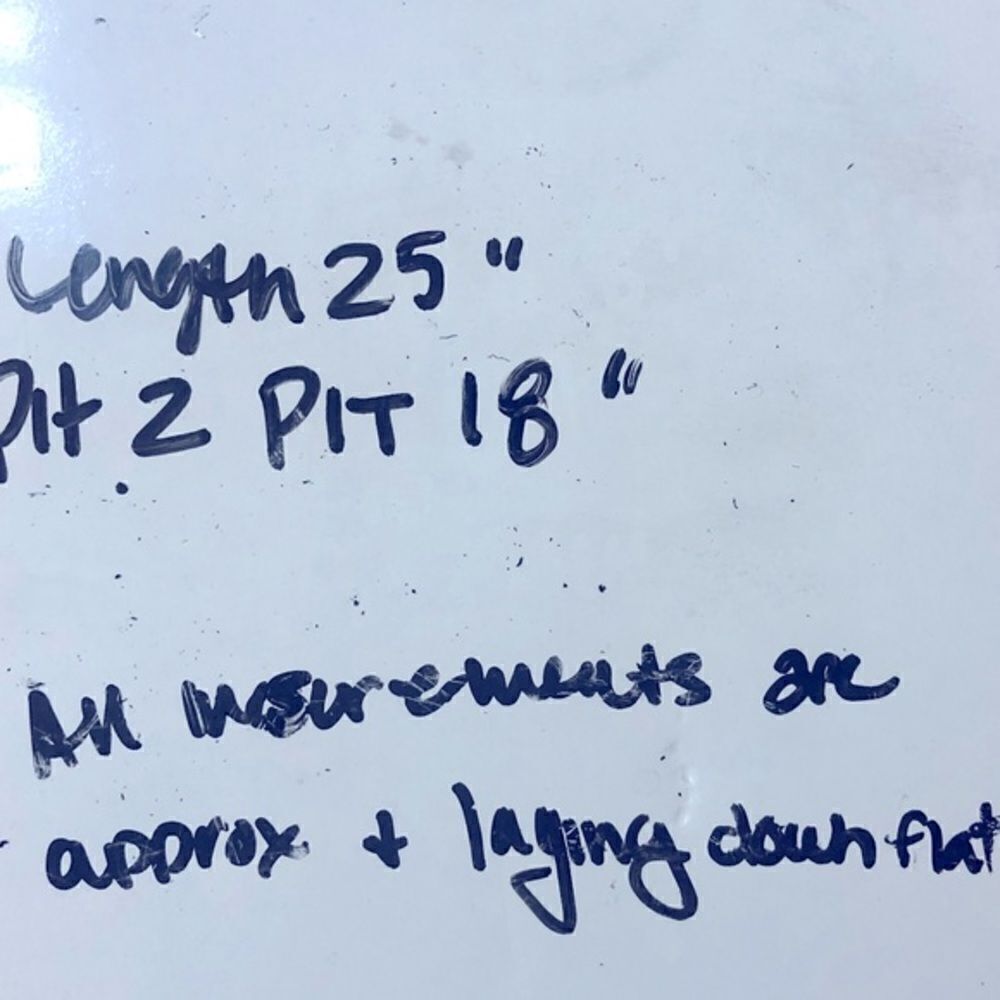 Length 25"
Pit 2 PIT 18"
All mesurements are
approx + laying down flat